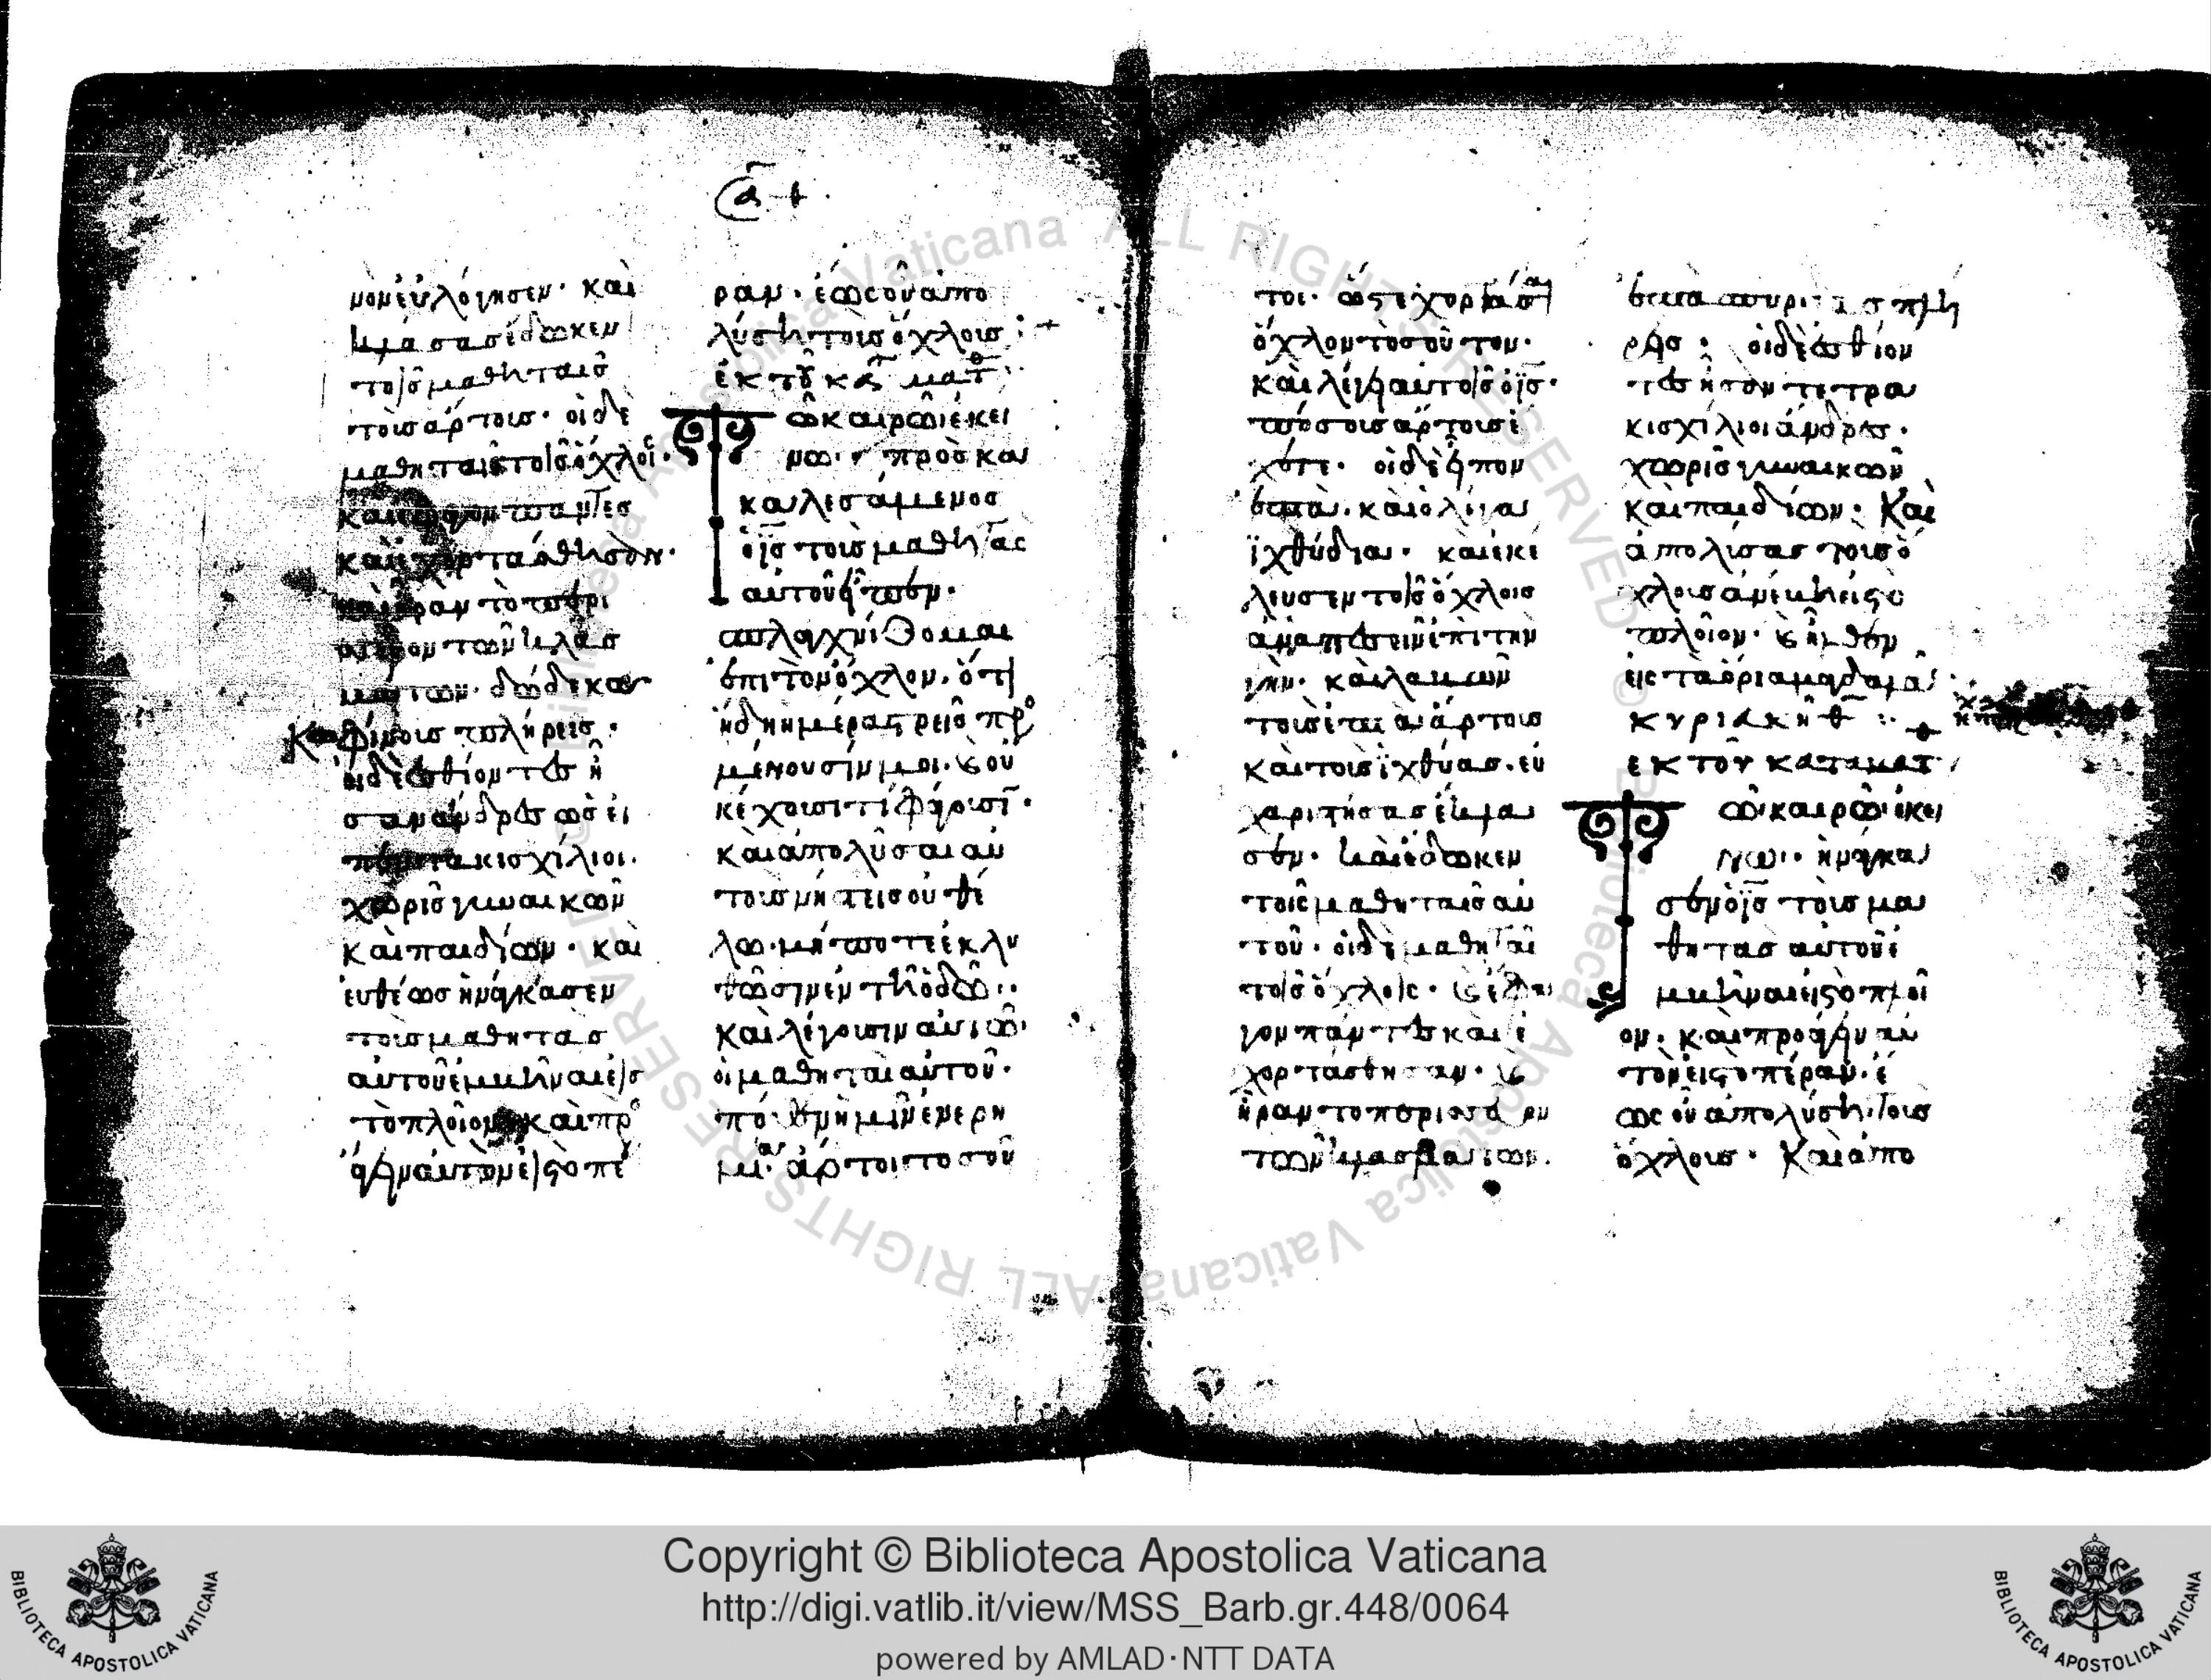 νὸν ἐυλόγησεν· καὶ
κλάσας ἔδωκεν
τοῖς μαθηταῖς
τοὺς ἄρτους· οἱ δὲ
μαθηταὶ τοῖς ὄχλοι·
καὶ ἔφαγον παντες
καὶ ἐχορτάσθησαν·
καὶ ἦραν τὸ περι
σεῦον τῶν κλασ
μάτων· δώδεκα
Κοφίνους πλήρεις·
οἱ δὲ ἐσθίοντες ἦ
σαν ἄνδρες ὡσεὶ
πεντακισχίλιοι·
χωρὶς γυναικῶν
καὶ παιδίων· καὶ
ἐυθέως ἠνάγκασεν
τοὺς μαθητὰς
αὐτοῦ ἐμβῆναι εἰς
τὸ πλοῖον καὶ πρ
άγειν αὐτὸν εἰς το πέ
ραν· ἕως οὗ ἀπο
λύσῃ τοὺς ὄχλους :+
ἐκ τοῦ κατ ματ
Τῶ καιρῶ ἐκεί
νω· προσκα
καλεσάμενος
ὁ ις τοὺς μαθητας
αὐτοῦ εἶπεν·
σπλαχνίζομαι
ἐπὶ τὸν ὄχλον· ὅτι
ἤδη ἡμέρας τρεῖς πρ
μένουσίν μοι· καὶ οὐ
κ ἔχουσι τί φάγωσι·
καὶ ἀπολῦσαι αὐ
τοὺς νήστεις οὐ θέ
λω· μήποτε ἐκλυ
θῶσιν ἐν τῇ ὁδῶ··
καὶ λέγουσιν αὐτῶ·
οἱ μαθηταὶ αὐτοῦ·
πόθεν ἡμῖν ἐν ερη
μία· ἄρτοι τοσοῦ
τοι· ὥστε χορτάσαι
ὄχλον τοσοῦτον·
καὶ λέγει αὐτοῖς ὁ ις·
πόσους ἄρτους ἔ
χετε· οἱ δὲ εἶπον
ἑπτὰ· καὶ ὀλίγα
ἰχθύδια· καὶ ἐκέ
λευσεν τοῖς ὄχλοις
ἀναπεσεῖν ἐπὶ τὴν
γῆν· καὶ λαβὼν
τοὺς ἑπτὰ ἄρτους
καὶ τοὺς ἰχθύας· εὐ
χαριτήσας ἔκλα
σεν· καὶ ἔδωκεν
τοῖς μαθηταῖς αὐ
τοῦ· οἱ δὲ μαθηταὶ
τοῖς ὄχλοις· καὶ ἔφα
γον πάντες καὶ ἐ
χορτάσθησαν· καὶ
ἦραν το περισσεῦον
τῶν κλασμάτων·
ἑπτὰ σπυρίδας πλή
ρεις· οἱ δὲ ἐσθίον
τες ἦσαν τετρα
κισχίλιοι ἄνδρες·
χωρὶς γυναικῶν
καὶ παιδίων· Καὶ
ἀπολύσας τοὺς ὄ
χλους ἀνέβη εἰς τὸ
πλοῖον· καὶ ἦλθεν
εἰς τὰ ὅρια μαγδαλὰ·
κυριακῆ θ :·
εκ τοῦ κατα ματ
Τῶ καιρῶ ἐκεί
νω· ἠνάγκα
σεν ὁ ις τοὺς μα
θητας αὐτοῦ ἐ
μβῆναι εἰς το πλοῖ
ον· καὶ προάγειν αὐ
τὸν εἰς τὸ πέραν· ἕ
ως οὗ ἀπολύσῃ τους
ὄχλους· Καὶ ἀπο
Copyright © Biblioteca Apostolica Vaticana
http://digi.vatlib.it/view/MSS_Barb.gr.448/0064
powered by AMLAD·NTT DATA
BIBLIOTECA APOSTOLICA VATICANA
BIBLIOTECA APOSTOLICA VATICANA